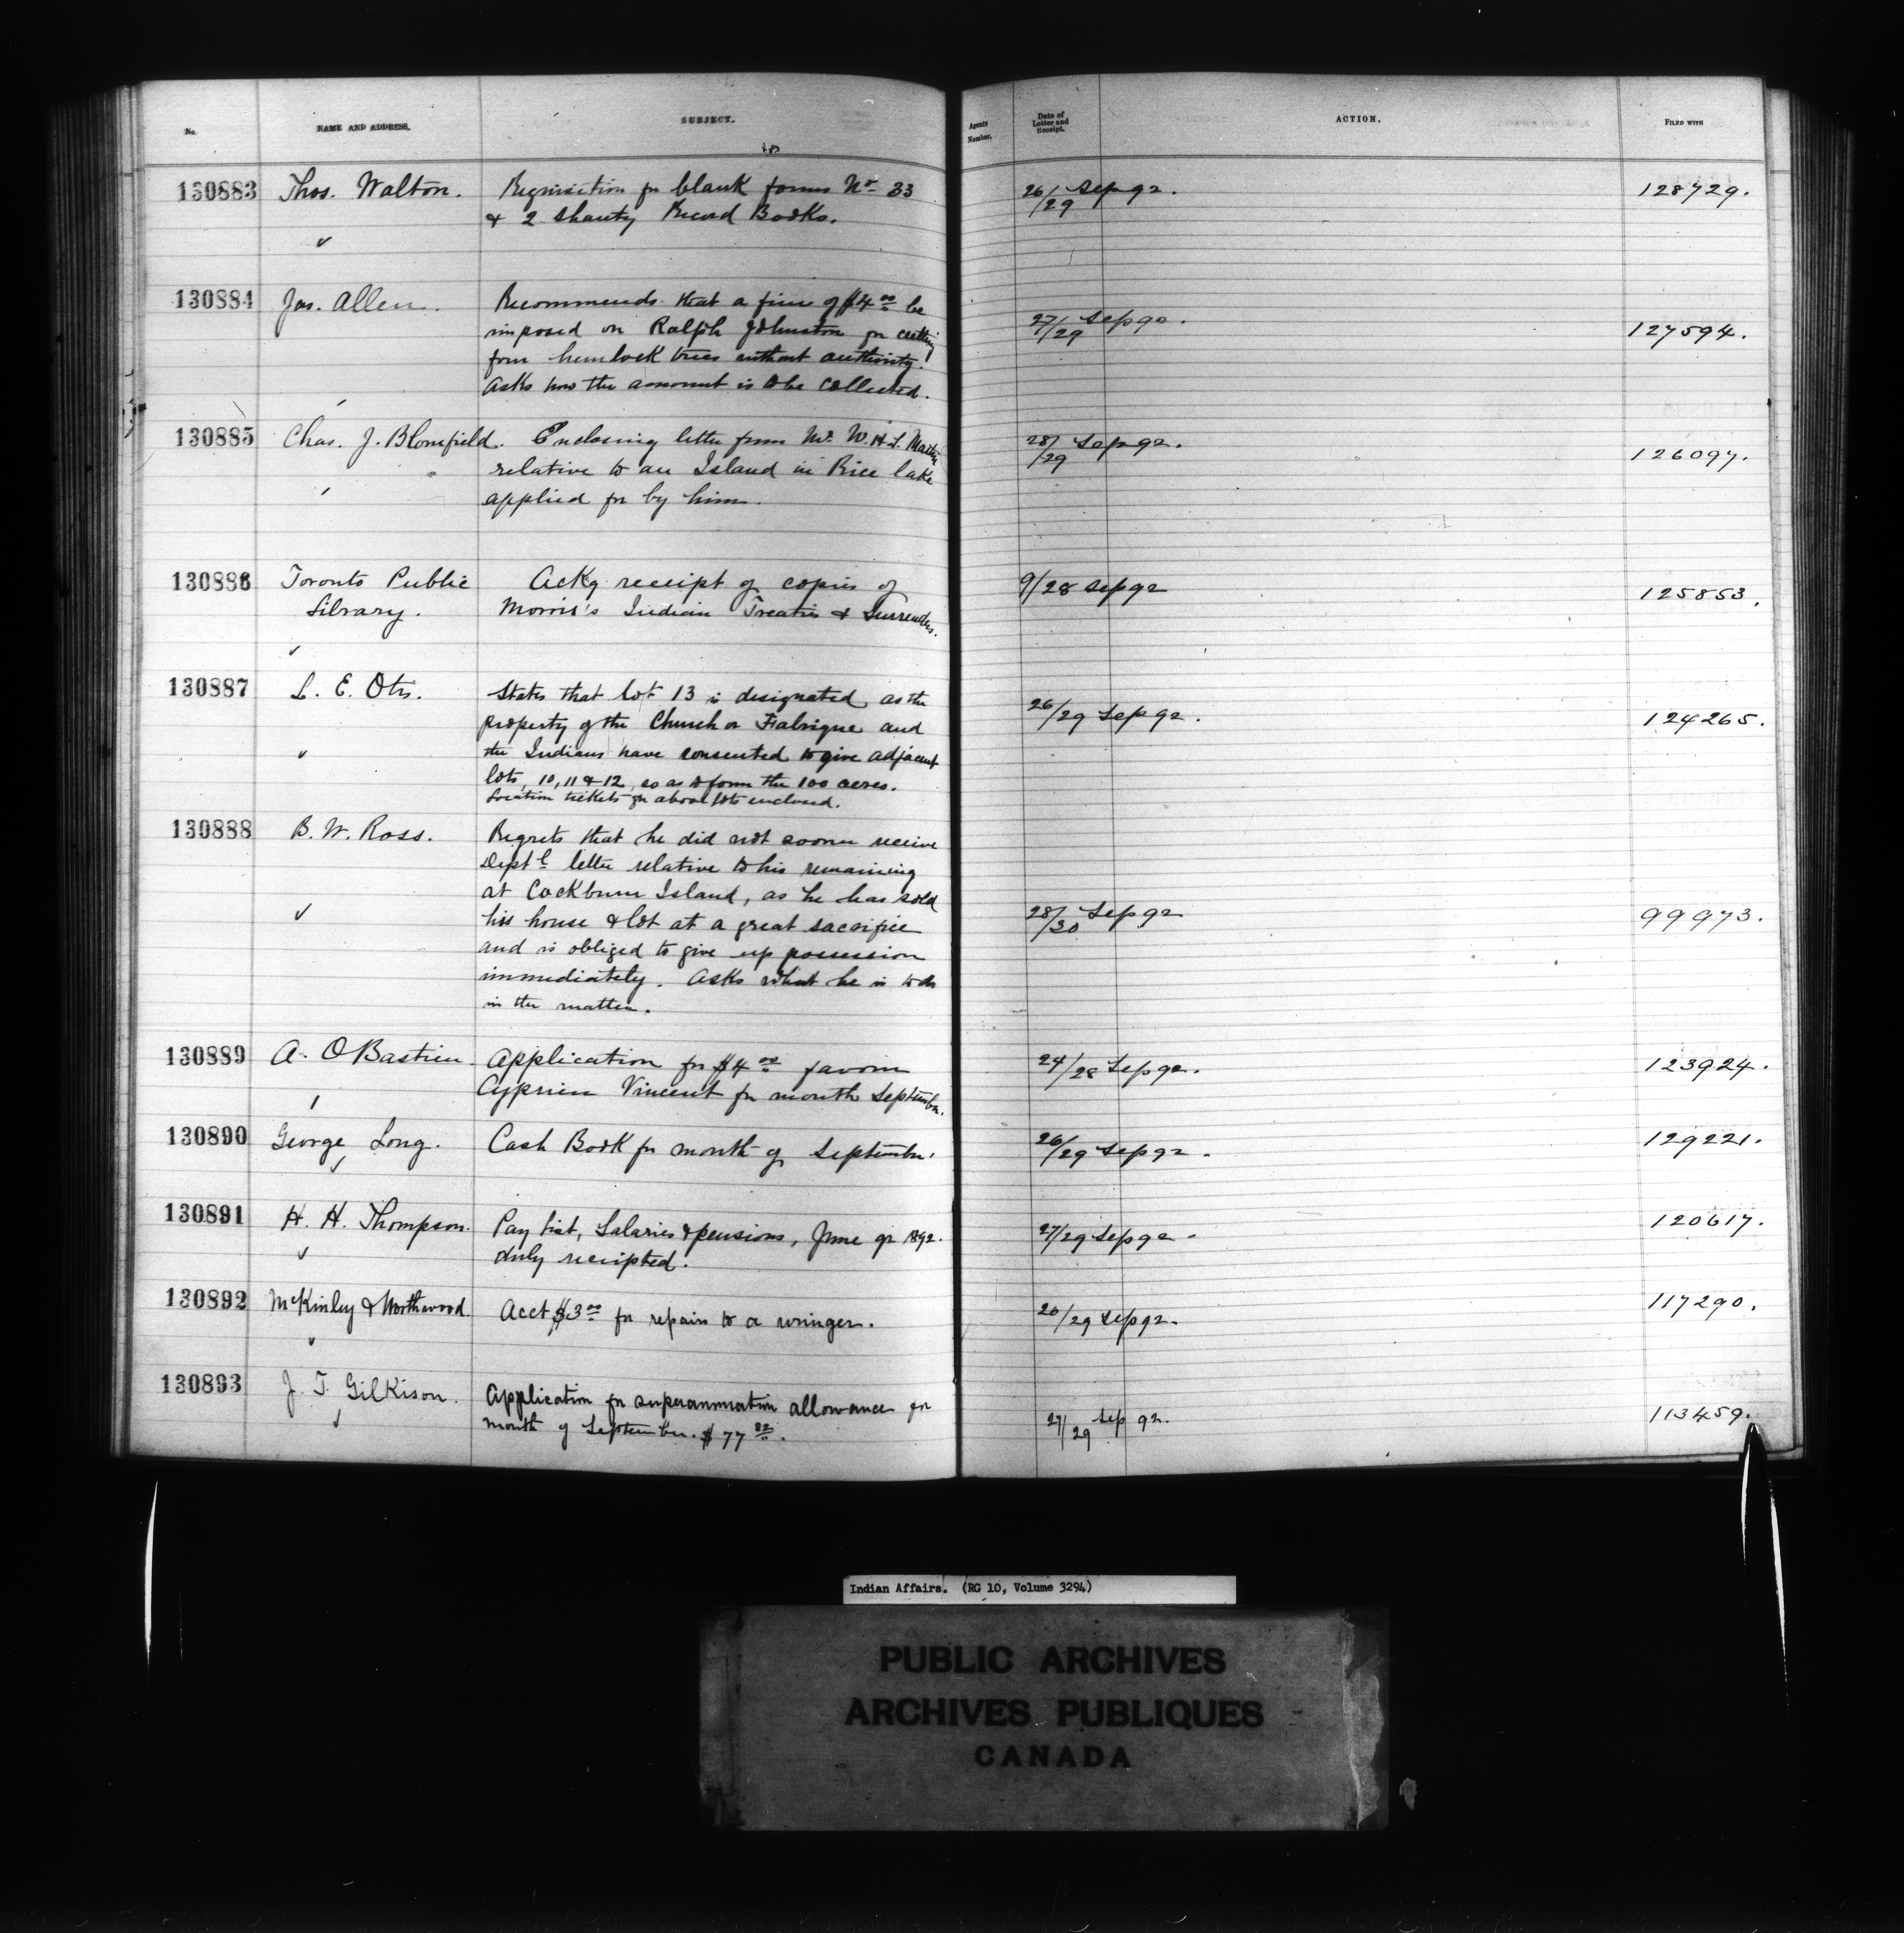 No.
NAME AND ADDRESS.
SUBJECT.
Agents Number.
Date of Letter and Receipt.
ACTION.
FILED WITH
130883 Thos. Walton. Requisition for blank forms No 33 26/29 Sep 92. 128729.
& 2 Shanty Record Books.
130884 Jas. Allen. Recommends that a fine of $4 00 be 27/29 Sep 92. 127594.
imposed on Ralph Johnston for cutting
four hemlock trees without authority.
Asks how the amount is to be collected.
130885 Chas. J. Blomfield. Enclosing letter from Mr. W.H.L. Martin 28/29 Sep 92. 126097.
relative to an Island in Rice lake
applied for by him.
130886 Toronto Public Ackg receipt of copies of 9/28 Sep 92 125853.
Library. Morris's Indian Treaties & Surrenders.
130887 L. E. Otis. States that lot 13 is designated as the 26/29 Sep 92. 124265.
property of the Church or Fabrique and
the Indians have consented to give adjacent
lots, 10, 11 & 12, so as to form the 100 acres.
Location tickets for above lots enclosed.
130888 B. W. Ross. Regrets that he did not sooner receive
Deptl letter relative to his remaining
at Cockburn Island, as he has sold
his house & lot at a great sacrifice 28/30 Sep 92 99973.
and is obliged to give up possession
immediately. Asks what he is to do
in the matter.
130889 A. O Bastien Application for $4 00 favour 24/28 Sep 92. 123924.
Cyprien Vincent for month September.
130890 George Long. Cash Book for month of September. 26/29 Sep 92. 129221.
130891 H. H. Thompson. Pay list, Salaries & pensions, June qr 1892. 27/29 Sep 92. 120617.
duly receipted.
130892 McKinley & Northwood. Acct $3 00 for repairs to a wringer. 20/29 Sep 92. 117290.
130893 J. T. Gilkison. Application for superannuation allowance for 27/29 Sep 92. 113459.
month of September. $77 82.
Indian Affairs. (RG 10, Volume 3294)
PUBLIC ARCHIVES
ARCHIVES PUBLIQUES
CANADA